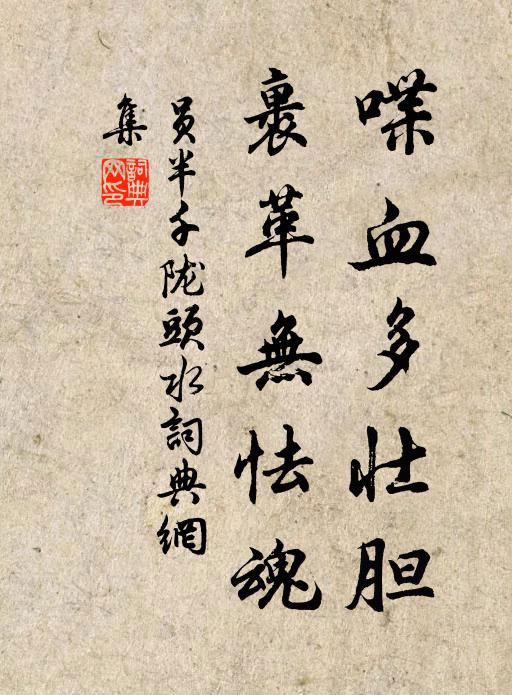 喋血多壮胆
裹革無怯魂
員半千陇頭水詞典網
集
詞典
网印